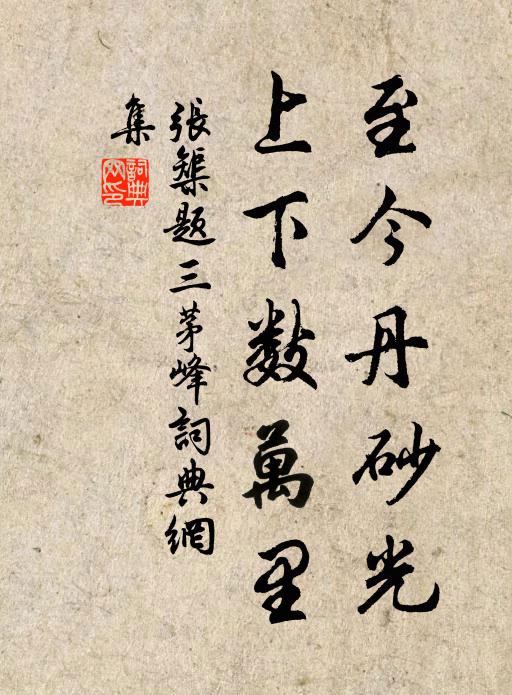 至今丹砂光
上下數萬里
張榘題三茅峰詞典網
集
詞典網印